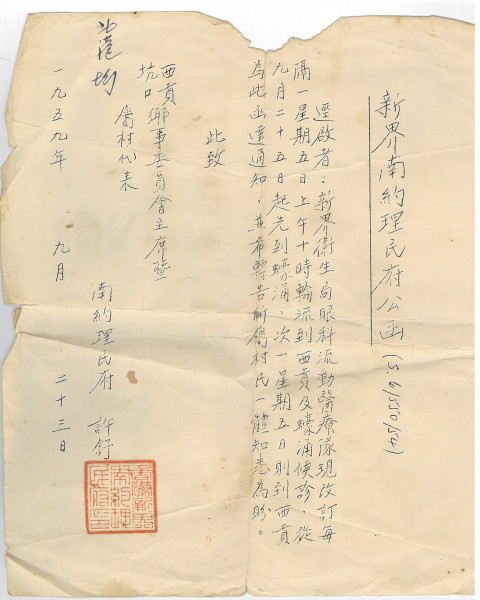 新界南約理民府公函
逕啟者：新界衛生局眼科流動醫療隊現改訂每
隔一星期五日上午十時輪流到西貢及蠔涌候診，從
九月二十五日起先到蠔涌，次一星期五日則到西貢
為此函達通知，並希轉告所屬村民一體知悉為盼。
此致
西貢
坑口鄉事委員會主席暨
屬村代表
南約理民府 許舒
一九五九年 九月 二十三日